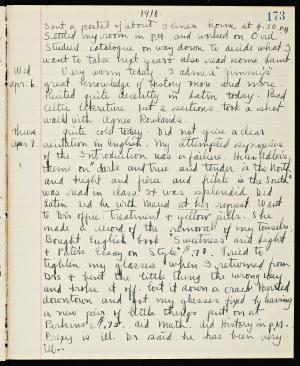 1918.
173
Sent a postal of about 3 lines home at 4.30 P.M.
Settled my room in P.M. and worked on Ovid.
Studied catalogue on way down to decide what I
want to take next year. also read some
Wed. Very warm today. I admire Jimmy's
Apr. 6. great knowledge of History more and more.
Recited quite decently in Latin today. Read
Celtic Literature 1st 2 sections. Took a short
walk with Agnes Rowlands.
Thurs. Quite cold today. Did not give a clear
recitation in English. My attempted synopsis
of the Introduction was a failure. Helen Adler's
theme on "dark and true and tender is the North
and bright and fierce and fickle is the South"
was read in class. It was splendid. Did
Latin and he with Maud at her request. Went
to Dr's office. Treatment & yellow pills. She
made a record of the removal of my tonsils.
Bought English book "Sweetness and Light
& Pater's Essay on Style" $.72. Tried to
tighten my glasses when I returned from
Drs & bent the little thing the wrong way
and broke it off. Lost it down a crack. Hurried
downtown and got my glasses fixed by having
a new pair of little things put on at
Perkins's $.75. did Math. did History in P.M.
Prexy is ill. Dr. said he has been very
ill.